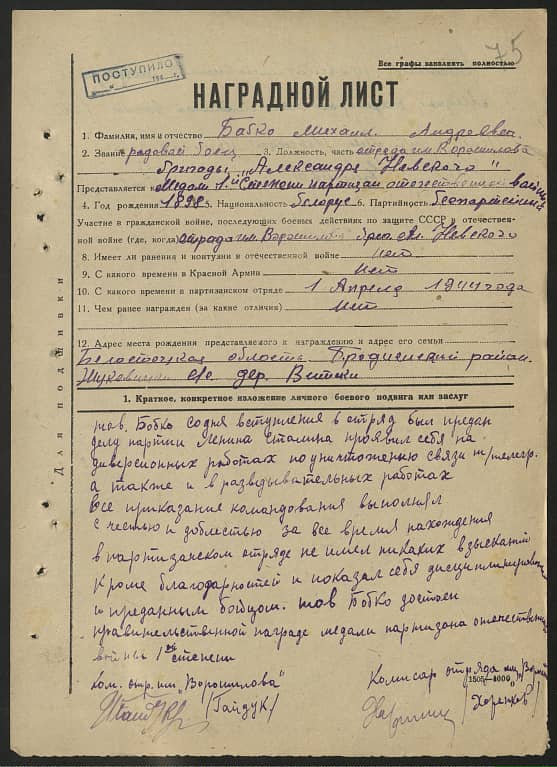 75
Все графы заполнять полностью
ПОСТУПИЛО
194 г.
НАГРАДНОЙ ЛИСТ
1. Фамилия, имя и отчество Бабко Михаил Андреевич
2. Звание рядовой боец 3. Должность, часть отряда им Ворошилова
бригады „Александра Невского"
Представляется к медали 1-й Степени партизан отечественной войны
4. Год рождения 1898 5. Национальность белорус 6. Партийность беспартейный
Участие в гражданской войне, последующих боевых действиях по защите СССР в отечествен-
ной войне (где, когда) отряда им. Ворошилова Невского
8. Имеет ли ранения и контузии в отечественной войне нет
9. С какого времени в Красной Армии нет
10. С какого времени в партизанском отряде 1 Апреля 1944 года
11. Чем ранее награжден (за какие отличия) нет
12. Адрес места рождения представляемого к награждению и адрес его семьи
Белостоцкая область район
дер.
Для подшивки
1. Краткое, конкретное изложение личного боевого подвига или заслуг
тов. Бобко со дня вступления в отряд был предан
делу партии Ленина Сталина проявил себя на
диверсионных работах по уничтожению связи
а также и в разведывательных работах
Все приказание командования выполнял
с честью и доблестью за все время нахождения
в партизанском отряде не имел никаких взысканий
кроме благодарностей и показал себя дисциплинирован
и преданным бойцом. тов Бобко достоен
правительственной награде медали партизана отечествен
войны 1ой степени
Ком. отр. им „Ворошилова" Комисар отряда им. Ворош
1505—4000
/Гайдук/ /Харенков/